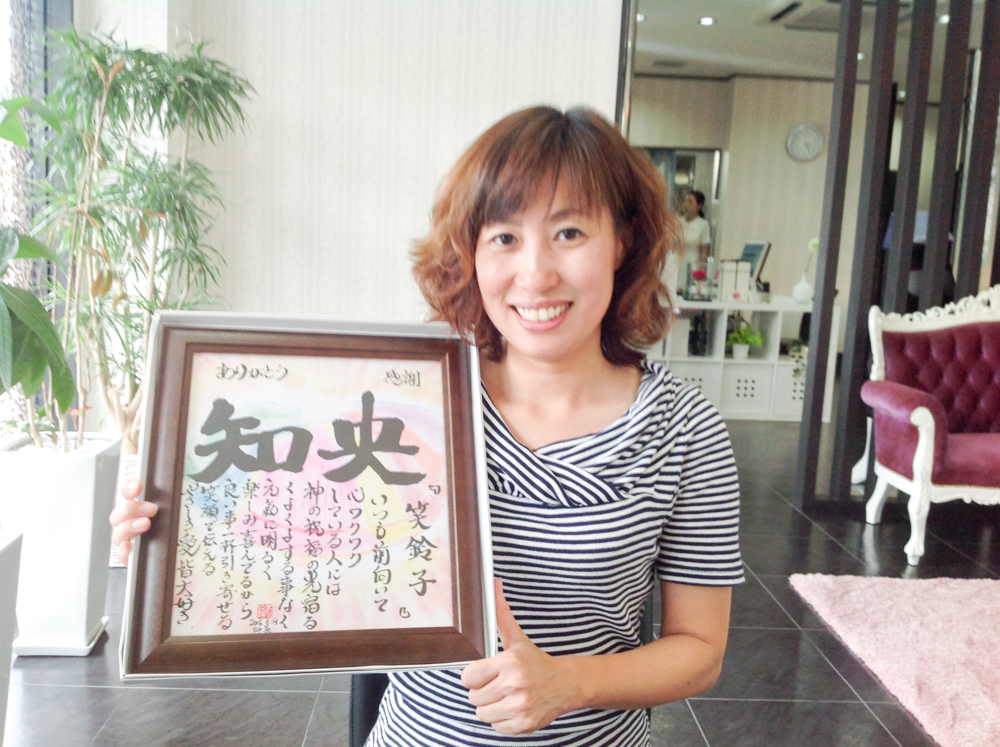 ありがとう
感謝
知央
『笑鈴子』
いつも前向いて
心ワクワク
している人には
神の祝福の光宿る
くよくよする事なく
元氣に明るく
楽しみ喜んでるから
良い事一杯引き寄せる
笑顔で伝える